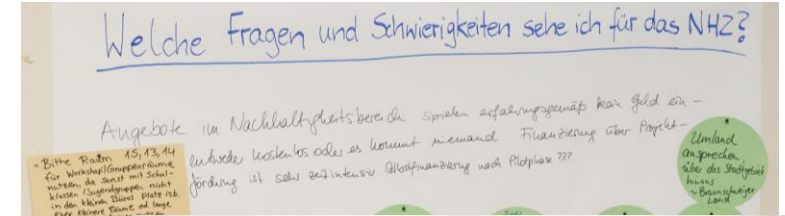 Welche Fragen und Schwierigkeiten sehe ich für das NHZ?
Angebote im Nachhaltigkeitsbereich spielen erfahrungsgemäß kein Geld ein -
entweder kostenlos oder es kommt niemand. Finanzierung über Projekt-
förderung ist sehr zeitintensiv Selbstfinanzierung nach Pilotphase ???
- Bitte Raum 15,13,14
für Workshop/Gruppenräume
nutzen, da sonst mit Schul-
klassen/Jugendgruppen nicht
in den kleinen Büros Platz ist.
kleinere Räume
Umland
ansprechen
über das Stadtgebiet
hinaus
~ Braunschweiger
Land